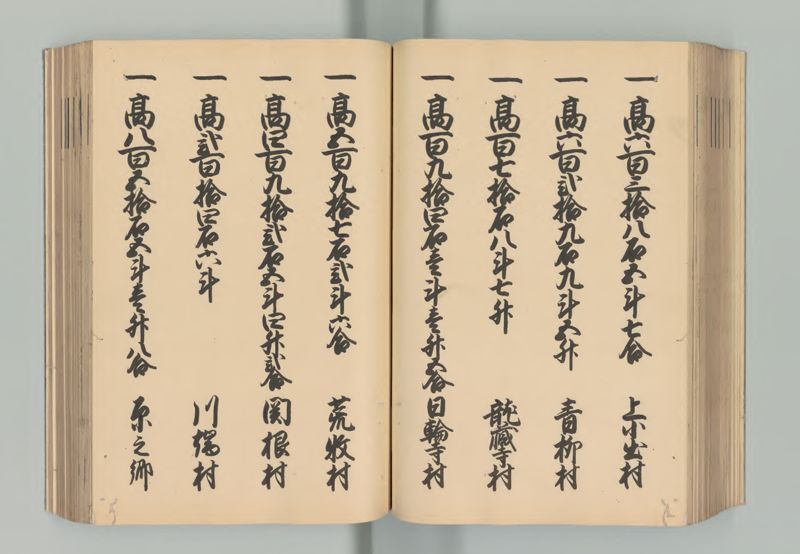 一 高六百三拾八石五斗七合 上小出村
一 高六百弐拾九石九斗五升 青柳村
一 高百七拾石八斗七升 龍蔵寺村
一 高百九拾四石壱斗壱升五合 日輪寺村
一 高五百九拾七石弐斗六合 荒牧村
一 高四百九拾弐石五斗四升弐合 関根村
一 高弐百拾四石六斗 川端村
一 高八百五拾石五斗壱升八合 原之郷